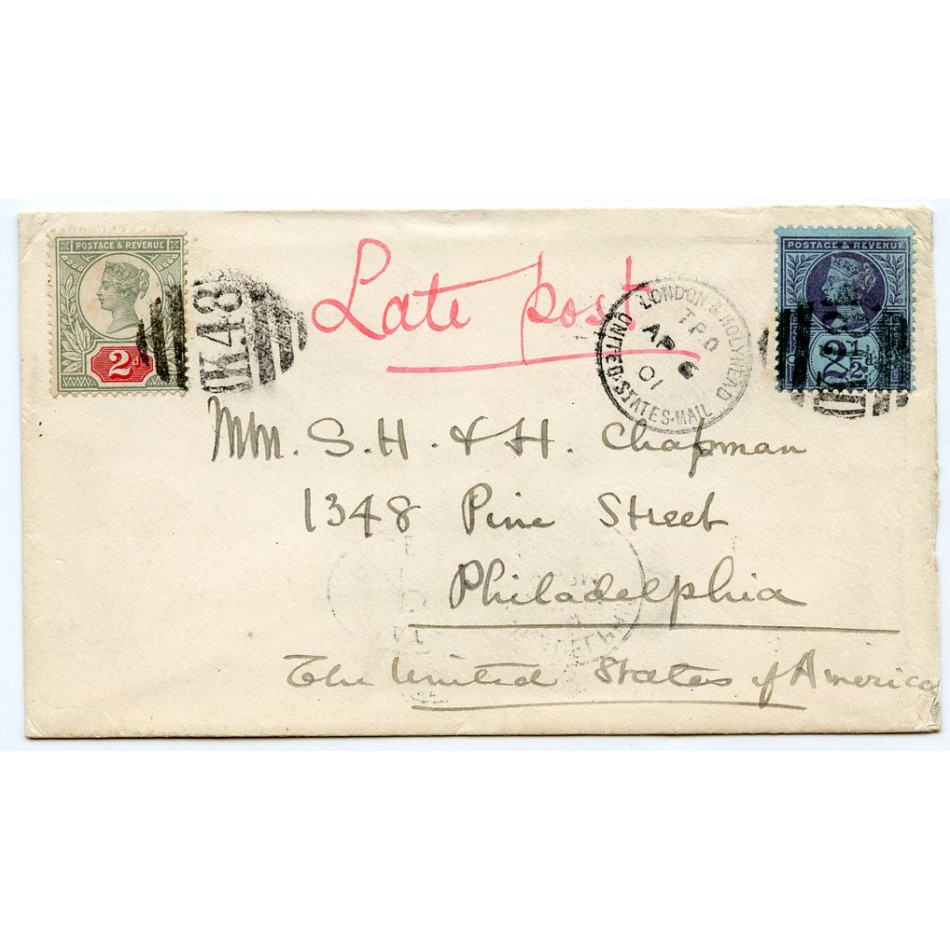 POSTAGE & REVENUE
2d
K.48
Late post
LONDON & HOLYHEAD
T.P.O
AP 6
01
UNITED·STATES·MAIL
POSTAGE & REVENUE
2½d
Mm. S.H. & H. Chapman
1348 Pine Street
Philadelphia
The United States of America